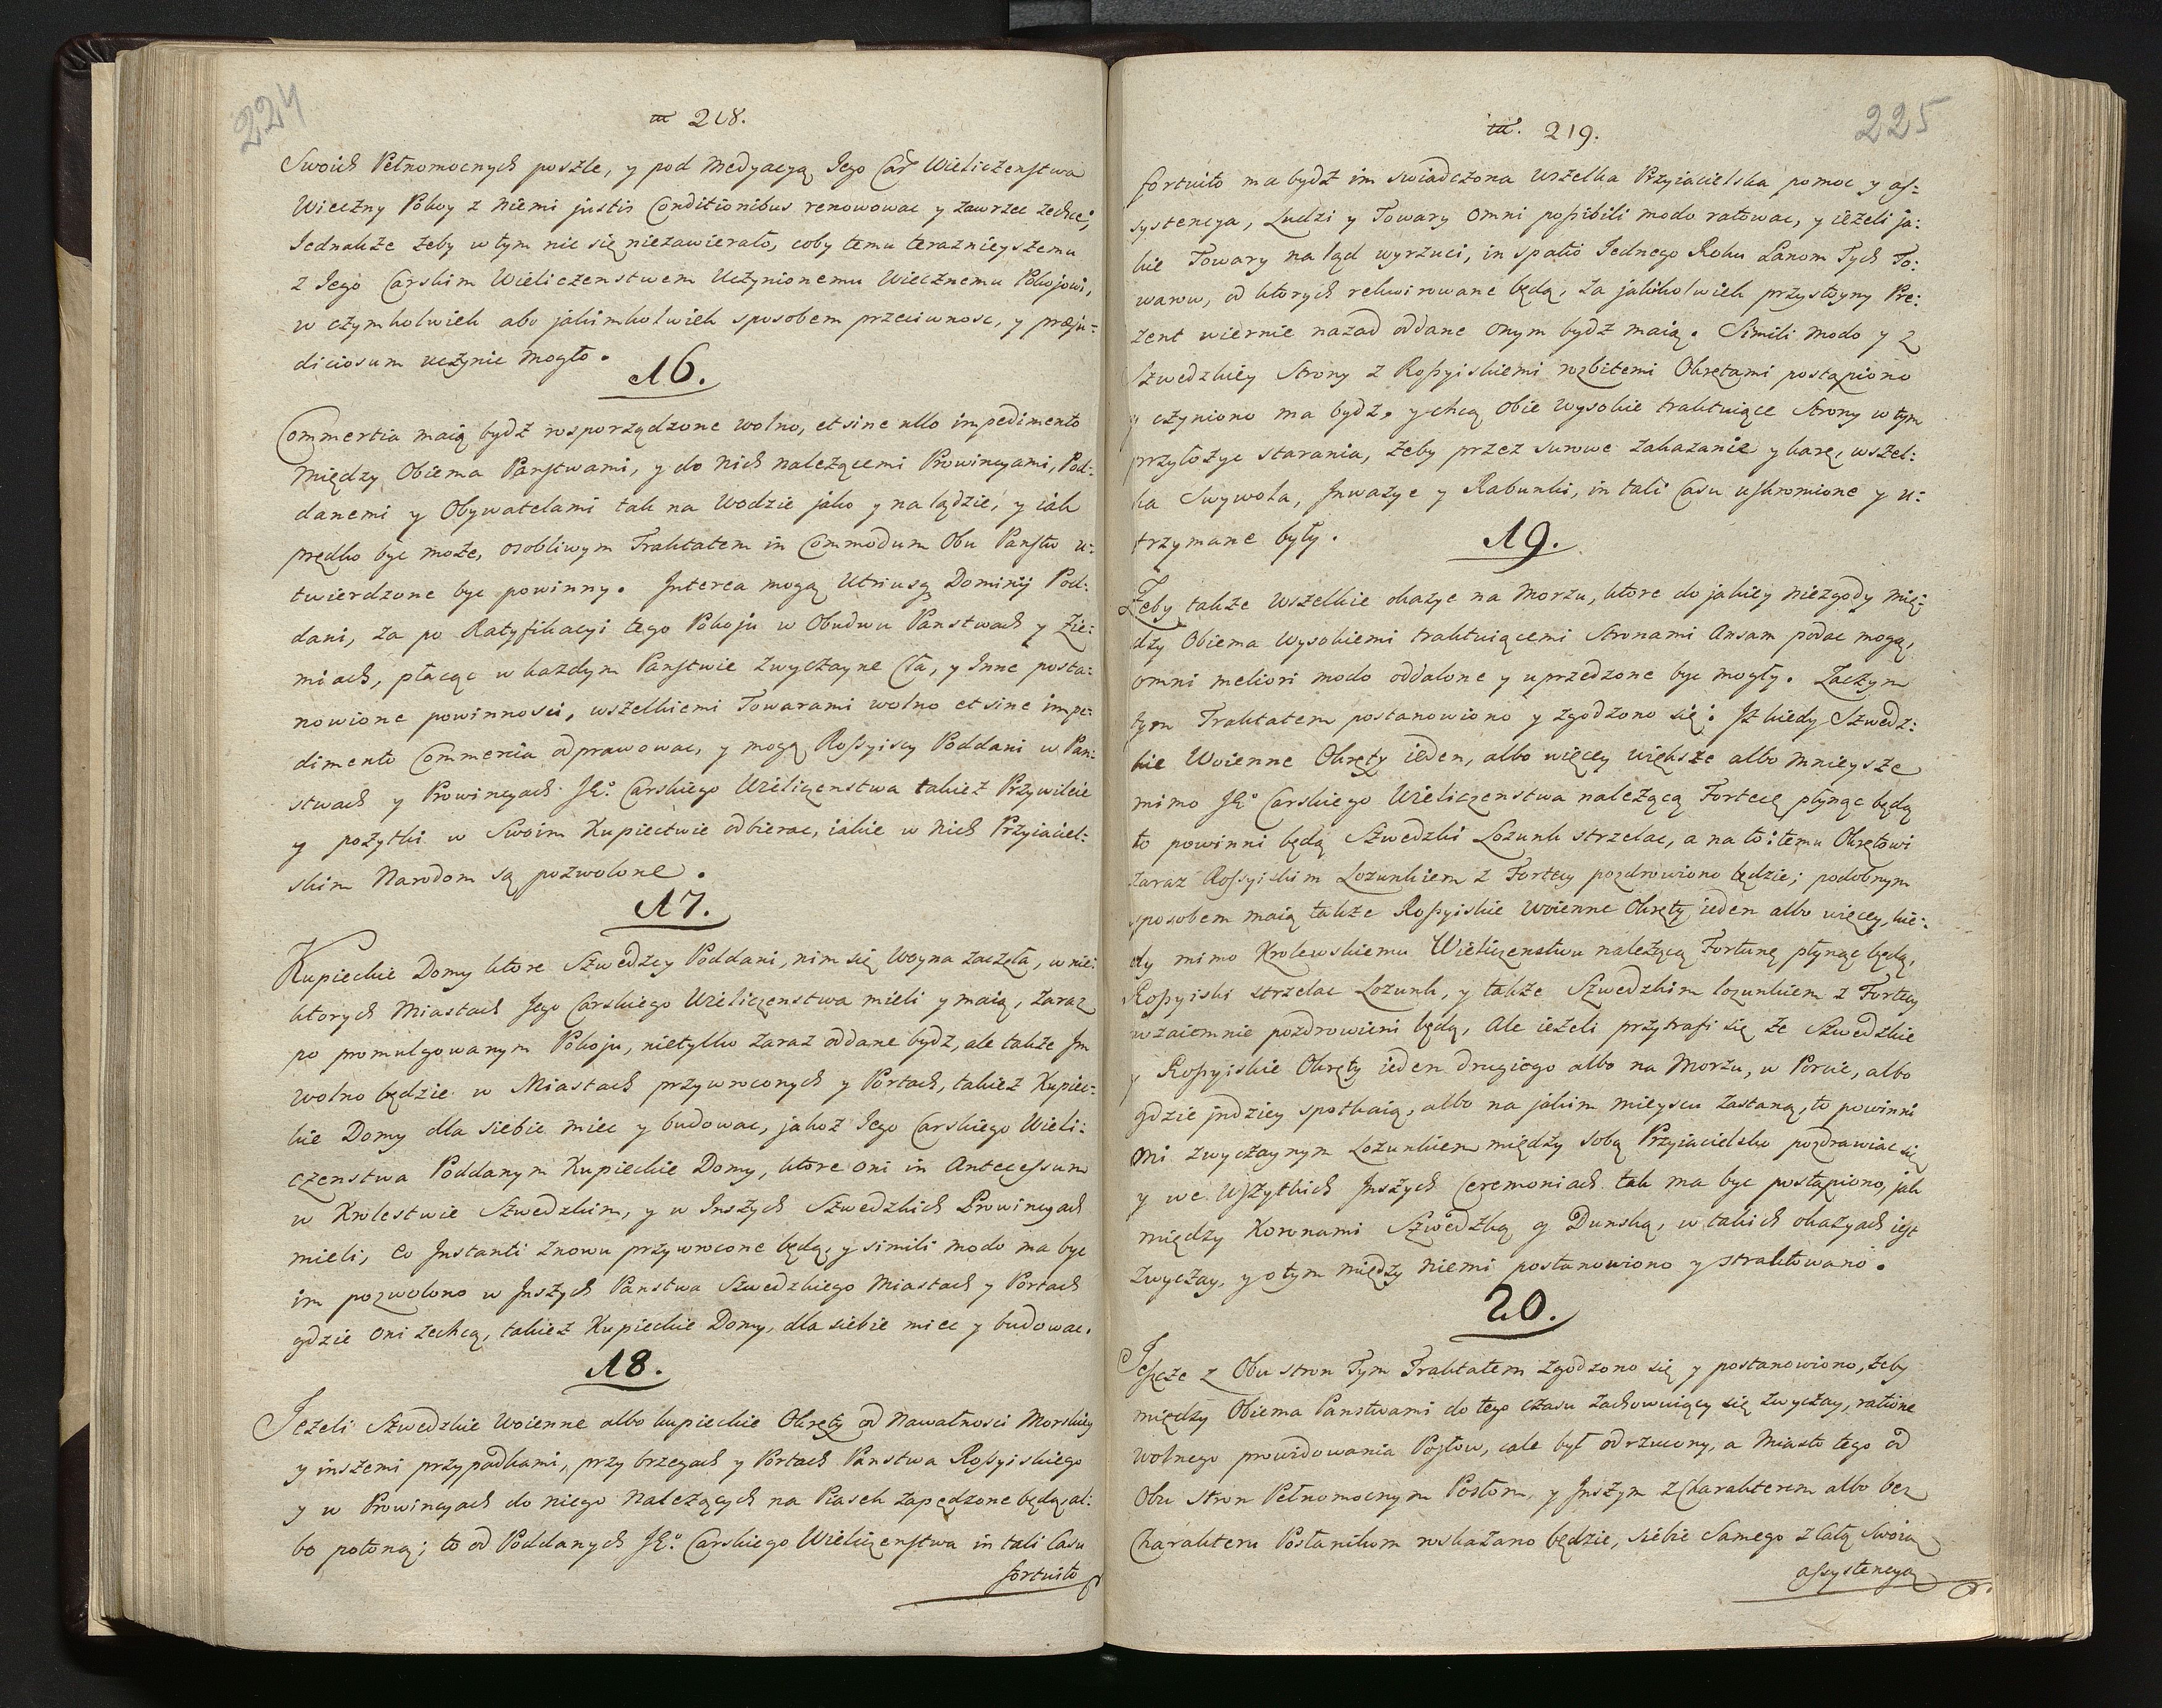 224
218.
Swoich Pełnomocnych poszle, y pod Medyacyą Jego Car Wieliczenstwa
Wieczny Pokoy z Niemi justis Conditionibus renowowac y zawrzec zechce;
Jednakże żeby w tym nic się niezawierało, coby temu teraznieyszemu
z Jego Carskim Wieliczenstwem Uczynionemu Wiecznemu Pokojowi,
w czymkolwiek abo jakimkolwiek sposobem przeciwnosc, y præju-
diciosum uczynic mogło.
16.
Commertia maią bydż rosporządzone wolno, et sine ullo impedimento
Między Obiema Panstwami, y do Nich należącemi Prowincyami, Pod:
danemi y Obywatelami tak na Wodzie jako y na lądzie, y iak
prędko byc może, osobliwym Traktatem in Commodum Obu Panstw u:
twierdzone byc powinny. Interea mogą Utriusq Dominij Pod:
dani, za po Ratyfikacyi tego Pokoju w Obudwu Panstwach y Zie:
miach, płacąc w każdym Panstwie zwyczayne Cła, y Inne posta:
nowione powinnosci, wszelkiemi Towarami wolno et sine impe:
dimento Commercia odprawowac, y mogą Rossyiscy Poddani w Pan:
stwach y Prowincyach JKo. Carskiego Wieliczenstwa takież Przywileie
y pożytki w Swoim Kupiectwie odbierac, iakie w Nich Przyiaciel:
skim Narodom są pozwolone.
17.
Kupieckie Domy ktore Szwedzcy Poddani, nim się Woyna zaczęła, w nie:
ktorych Miastach Jego Carskiego Wieliczenstwa mieli y maią, zaraz
po promulgowanym Pokoju, nietylko zaraz oddane bydz, ale także Im
wolno będzie w Miastach przywroconych y Portach, takież Kupiec:
kie Domy dla siebie miec y budowac, jakoż Jego Carskiego Wieli:
czenstwa Poddanym Kupieckie Domy, ktore oni in Antecessum
w Krolestwie Szwedzkim, y w Inszych Szwedzkich Prowincyach
mieli, Eo Instanti znowu przywrocone będą, y simili modo ma byc
im pozwolono w Inszych Panstwa Szwedzkiego Miastach y Portach
gdzie oni zechcą, takież Kupieckie Domy, dla siebie miec y budowac.
18.
Jeżeli Szwedzkie Woienne albo kupieckie Okręty od Nawałnosci Morskiey
y inszemi przypadkami, przy brzegach y Portach Panstwa Rossyiskiego
y w Prowincyach do niego Należących na Piasek zapędzone będą, al:
bo potoną; to od Poddanych JKo. Carskiego Wieliczenstwa in tali Casu
fortuito
225
219.
fortuito ma bydż im swiadczona Wszelka Przyiacielska pomoc y as-
systencya, Ludzi y Towary Omni possibili modo ratowac, y ieżeli ja:
kie Towary na ląd wyrzuci, in spatio Jednego Roku Panom Tych To:
warow, od ktorych rekwirowane będą, za jakikolwiek przystoyny Pre:
zent wiernie nazad oddane Onym bydż maią. Simili Modo y z
Szwedzkiey Strony z Rossyiskiemi rozbitemi Okrętami postąpiono
y czyniono ma bydz, y chcą Obie Wysokie traktuiące Strony w tym
przyłożyc starania, żeby przez surowe zakazanie y karę, wszel:
ka Swywola, Inwazye y Rabunki, in tali Casu uskromione y u:
trzymane były.
19.
Żeby także Wszelkie okazye na Morzu, ktore do jakiey niezgody mię:
dzy Obiema Wysokiemi traktuiącemi Stronami Ansam podac mogą,
omni meliori modo oddalone y uprzedzone byc mogły. Zaczym
tym Traktatem postanowiono y zgodzono się: Iż kiedy Szwedz:
kie Woienne Okręty ieden, albo więcey większe albo Mnieysze
mimo JKo Carskiego Wieliczenstwa należącą Fortecę płynąc będą
to powinni będą Szwedzki Lozunk strzelac, a na to: temu Okrętowi
zaraz Rossyiskim Lozunkiem z Fortecy pozdrowiono będzie; podobnym
sposobem maią także Rossyiskie Woienne Okręty ieden albo więcey, kie:
dy mimo Krolewskiemu Wieliczenstwu należącą Fortunę płynąc będą,
Rossyiski strzelac Lozunk, y także Szwedzkim lozunkiem z Fortecy
wzaiemnie pozdrowieni będą, Ale ieżeli przytrafi się że Szwedzkie
y Rossyiskie Okręty ieden drugiego albo na Morzu, w Porcie, albo
gdzie indziey spotkaią, albo na jakim mieyscu zastaną, to powinni
Oni zwyczaynym Lozunkiem między sobą Przyiacielsko pozdrawiac się
y we Wszytkich Inszych Ceremoniach tak ma byc postąpiono, jak
między Koronami Szwedzką y Dunską, w takich okazyach iest
zwyczay, y o tym między Niemi postanowiono y straktowano.
20.
Jeszcze z Obu stron Tym Traktatem zgodzono się y postanowiono, żeby
między Obiema Panstwami do tego czasu zachowuiący się zwyczay, ratione
wolnego prowidowania Posłow, cale był odrzucony, a Miasto tego od
Obu Stron Pełnomocnym Posłom, y Inszym z Charakterem albo bez
Charakteru Posłanikom wskazano będzie, siebie Samego z całą Swoią
assystencyą